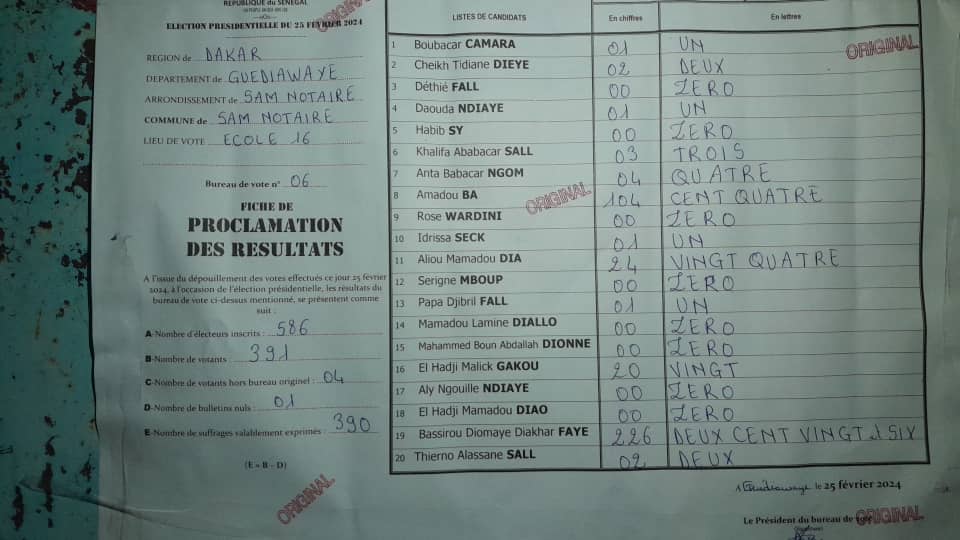 REPUBLIQUE DU SENEGAL
ELECTION PRESIDENTIELLE DU 25 FÉVRIER 2024
ORIGINAL
REGION de DAKAR
DEPARTEMENT de GUEDIAWAYE
ARRONDISSEMENT de SAM NOTAIRE
COMMUNE de SAM NOTAIRE
LIEU DE VOTE ECOLE 16
Bureau de vote n° 06
FICHE DE
PROCLAMATION
DES RESULTATS
A l'issue du dépouillement des votes effectués ce jour 25 février
2024, à l'occasion de l'élection présidentielle, les résultats du
bureau de vote ci-dessus mentionné, se présentent comme
suit :
A-Nombre d'électeurs inscrits : 586
B-Nombre de votants : 391
C-Nombre de votants hors bureau originel : 04
D-Nombre de bulletins nuls : 01
E-Nombre de suffrages valablement exprimés : 390
(E = B - D)
ORIGINAL
LISTES DE CANDIDATS En chiffres En lettres
1 Boubacar CAMARA 01 UN
ORIGINAL
2 Cheikh Tidiane DIEYE 02 DEUX
3 Déthié FALL 00 ZERO
4 Daouda NDIAYE 01 UN
5 Habib SY 00 ZERO
6 Khalifa Ababacar SALL 03 TROIS
7 Anta Babacar NGOM 04 QUATRE
8 Amadou BA 104 CENT QUATRE
ORIGINAL
9 Rose WARDINI 00 ZERO
10 Idrissa SECK 01 UN
11 Aliou Mamadou DIA 24 VINGT QUATRE
12 Serigne MBOUP 00 ZERO
13 Papa Djibril FALL 01 UN
14 Mamadou Lamine DIALLO 00 ZERO
15 Mahammed Boun Abdallah DIONNE 00 ZERO
16 El Hadji Malick GAKOU 20 VINGT
17 Aly Ngouille NDIAYE 00 ZERO
18 El Hadji Mamadou DIAO 00 ZERO
19 Bassirou Diomaye Diakhar FAYE 226 DEUX CENT VINGT et SIX
20 Thierno Alassane SALL 02 DEUX
A Guediawaye le 25 février 2024
Le Président du bureau de vote
ORIGINAL